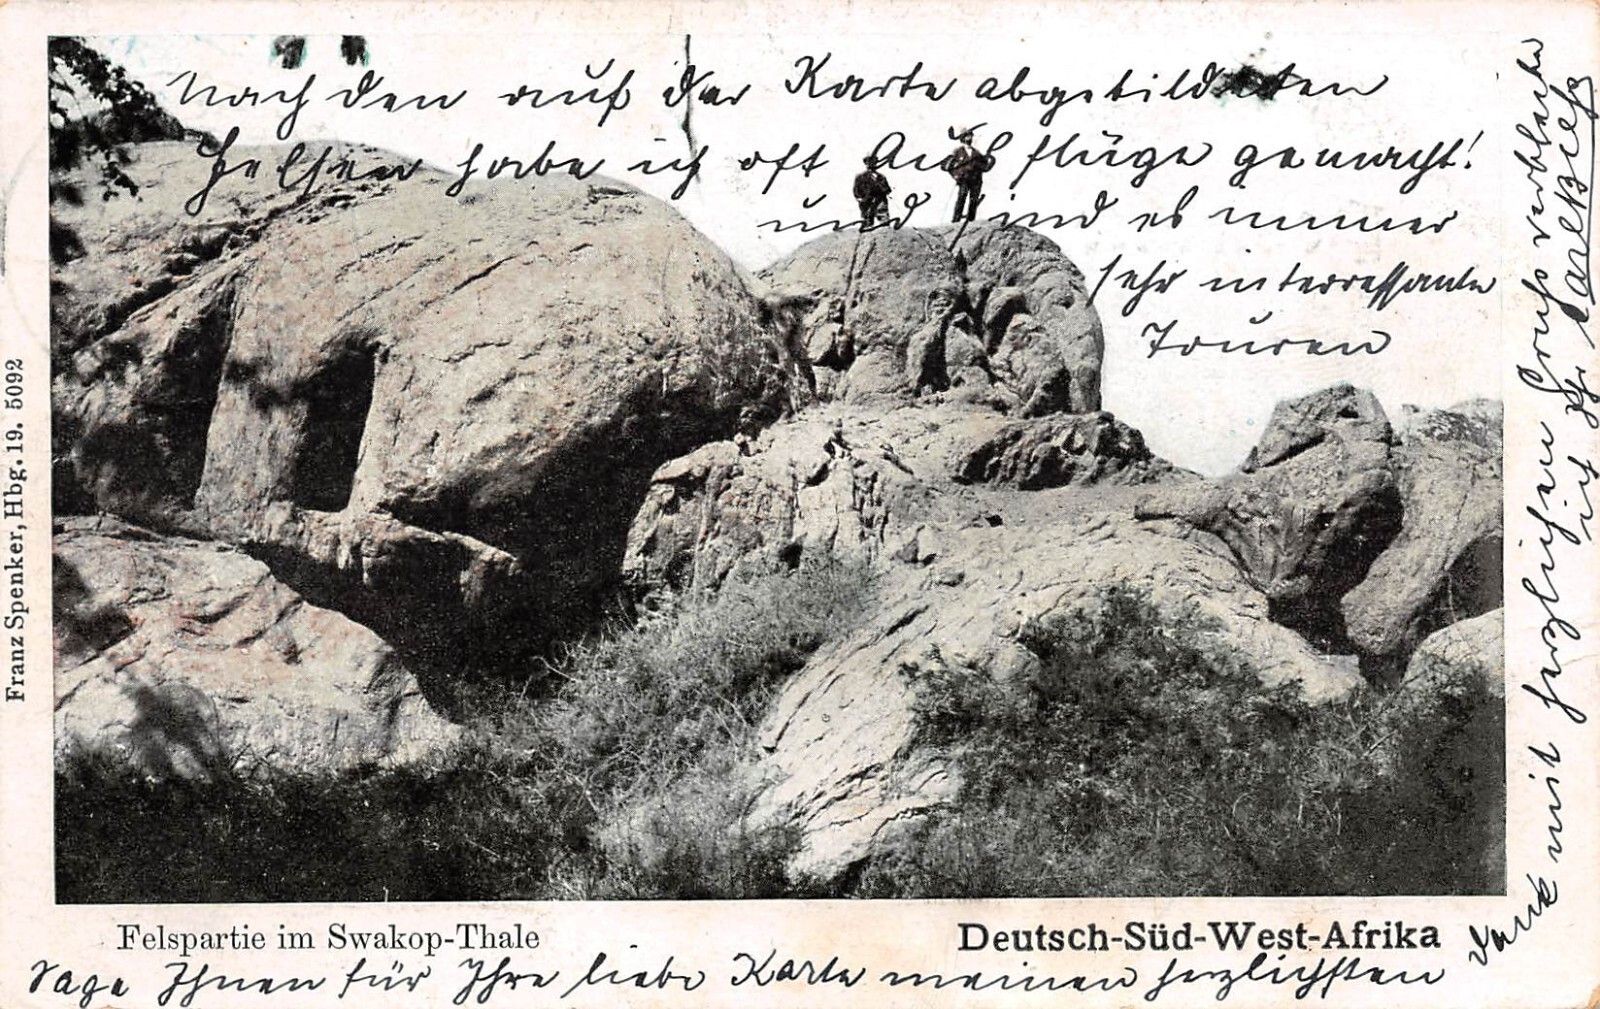 Nach den auf der Karte abgebildeten
Felsen habe ich oft Ausflüge gemacht!
und sind es immer
sehr interressante
Touren
Franz Spenker, Hbg. 19. 5092
Felspartie im Swakop-Thale
Deutsch-Süd-West-Afrika
Sage Ihnen für Ihre liebe Karte meinen herzlichsten
Dank mit herzlichen Gruß verbleibe
ich Ihr Carl